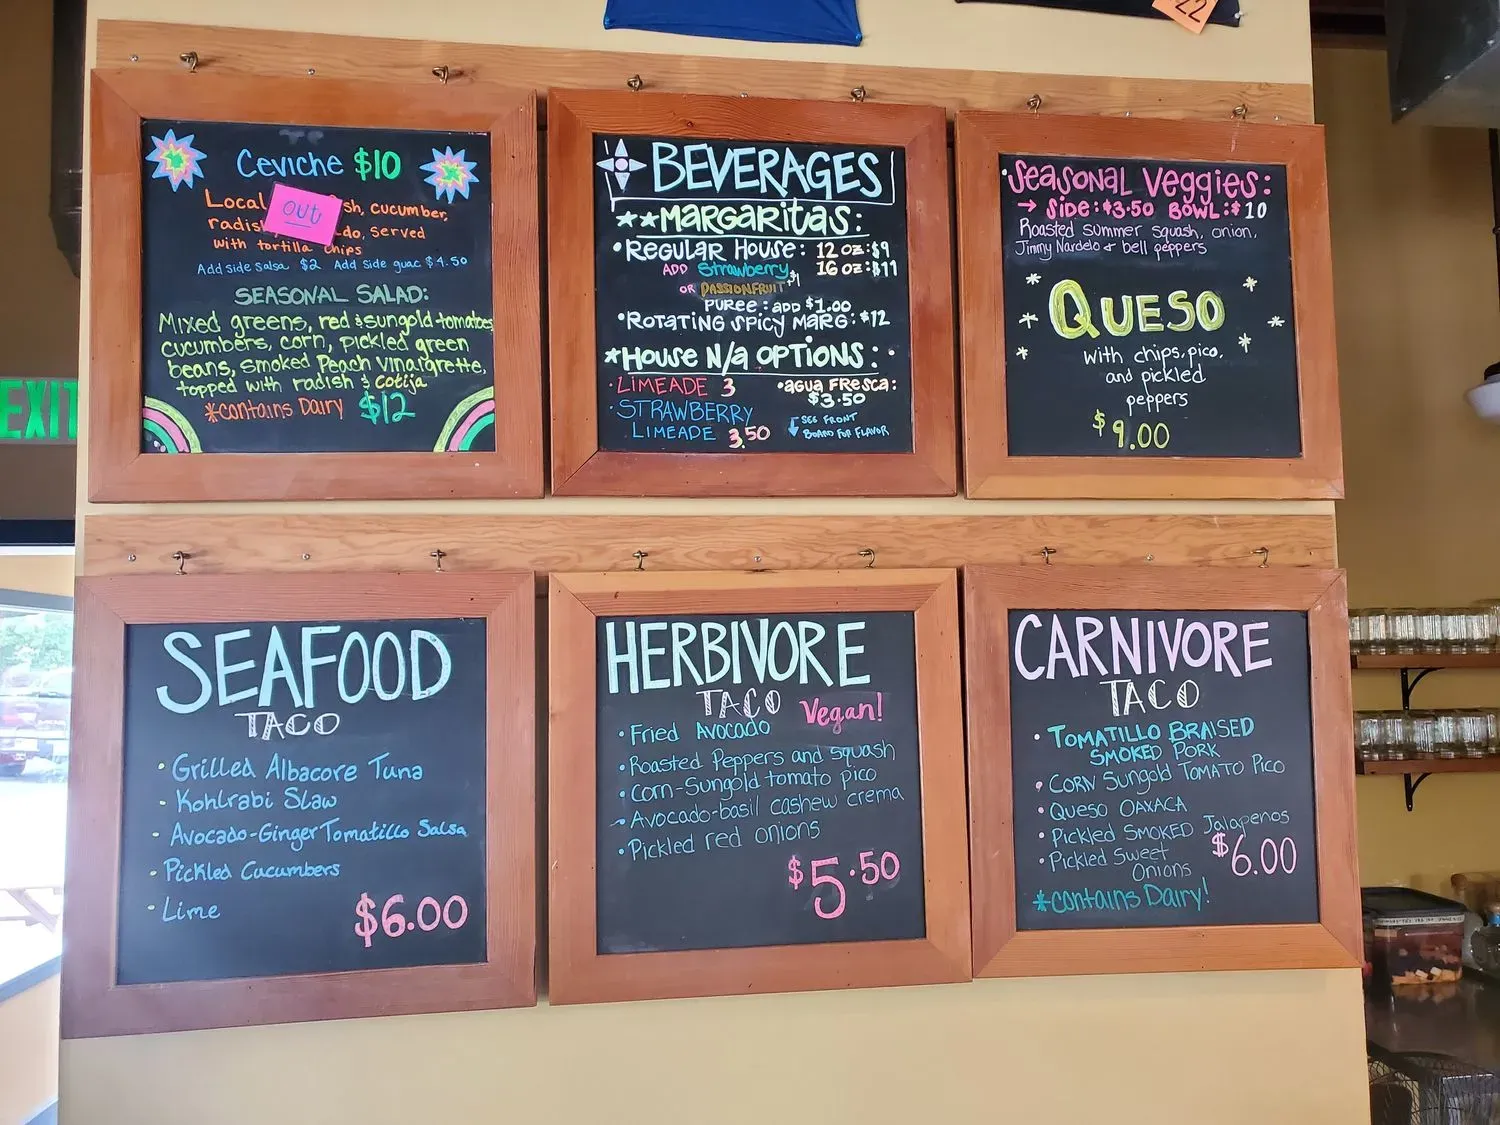 22
EXIT
Ceviche $10
Local
out
sh, cucumber,
radis
do, served
with tortilla chips
Add side salsa $2 Add side guac $4.50
SEASONAL SALAD:
Mixed greens, red & sungold tomatoes
cucumbers, corn, pickled green
beans, smoked Peach vinaigrette,
topped with radish & cotija
*contains Dairy $12
BEVERAGES
**MARGARITAS:
•REGULAR HOUSE: 12 oz:$9
ADD Strawberry 16 oz:$11
OR PASSIONFRUIT +$1
PUREE: ADD $1.00
•ROTATING SPICY MARG: $12
*HOUSE N/A OPTIONS:
•LIMEADE 3
•AGUA FRESCA:
$3.50
•STRAWBERRY
LIMEADE 3.50
SEE FRONT
BOARD FOR FLAVOR
SEASONAL VEGGIES:
→ SIDE:$3.50 BOWL:$10
Roasted summer squash, onion,
Jimmy Nardelo + bell peppers
QUESO
with chips, pico,
and pickled
peppers
$9.00
SEAFOOD
TACO
• Grilled Albacore Tuna
• Kohlrabi Slaw
• Avocado-Ginger Tomatillo Salsa
• Pickled Cucumbers
• Lime
$6.00
HERBIVORE
TACO Vegan!
• Fried Avocado
• Roasted Peppers and squash
• Corn-Sungold tomato pico
• Avocado-basil cashew crema
• Pickled red onions
$5.50
CARNIVORE
TACO
• TOMATILLO BRAISED
SMOKED PORK
• CORN SUNGOLD TOMATO PICO
• QUESO OAXACA
• Pickled SMOKED Jalapenos
• Pickled Sweet
Onions
$6.00
*contains Dairy!